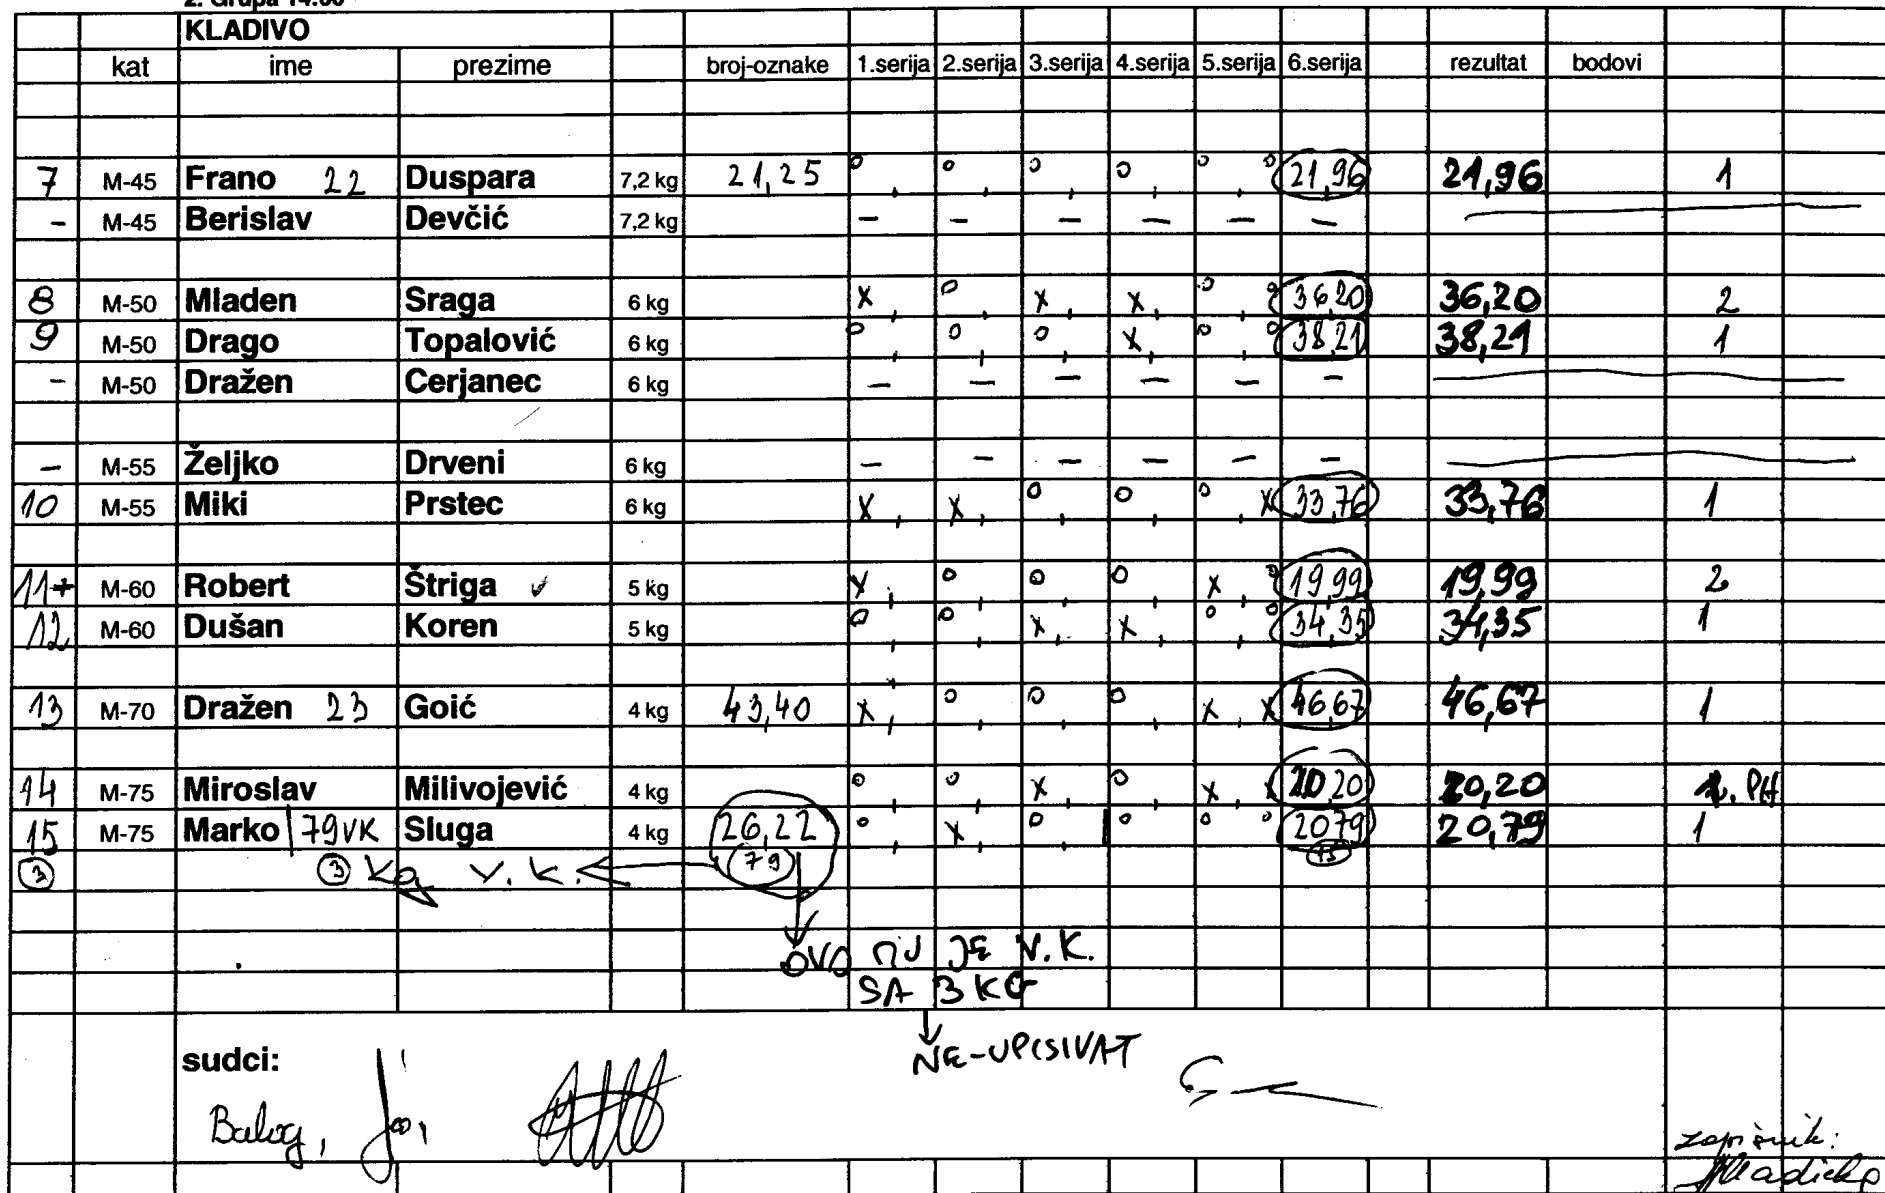 2. Grupa 14:00
KLADIVO
kat ime prezime broj-oznake 1.serija 2.serija 3.serija 4.serija 5.serija 6.serija rezultat bodovi
7 M-45 Frano 22 Duspara 7,2 kg 21,25 o, o, o, o, o, o 21,96 21,96 1
- M-45 Berislav Devčić 7,2 kg - - - - - -
8 M-50 Mladen Sraga 6 kg x, o, x, x, o, o 36,20 36,20 2
9 M-50 Drago Topalović 6 kg o, o, o, x, o, o 38,21 38,21 1
- M-50 Dražen Cerjanec 6 kg - - - - - -
- M-55 Željko Drveni 6 kg - - - - - -
10 M-55 Miki Prstec 6 kg x, x, o, o, o, x 33,76 33,76 1
11+ M-60 Robert Štriga ✓ 5 kg x, o, o, o, x, o 19,99 19,99 2
12 M-60 Dušan Koren 5 kg o, o, x, x, o, o 34,35 34,35 1
13 M-70 Dražen 23 Goić 4 kg 43,40 x, o, o, o, x, x 46,67 46,67 1
14 M-75 Miroslav Milivojević 4 kg o, o, x, o, x, x 20,20 20,20
15 M-75 Marko 79VK Sluga 4 kg 26,22 o, x, o, o, o, o 20,79 20,79 1
3 3 Kg V. K. 79
OVO MU JE V.K.
SA 3 KG
NE-UPISIVAT
sudci:
Balog,
zapisnik: